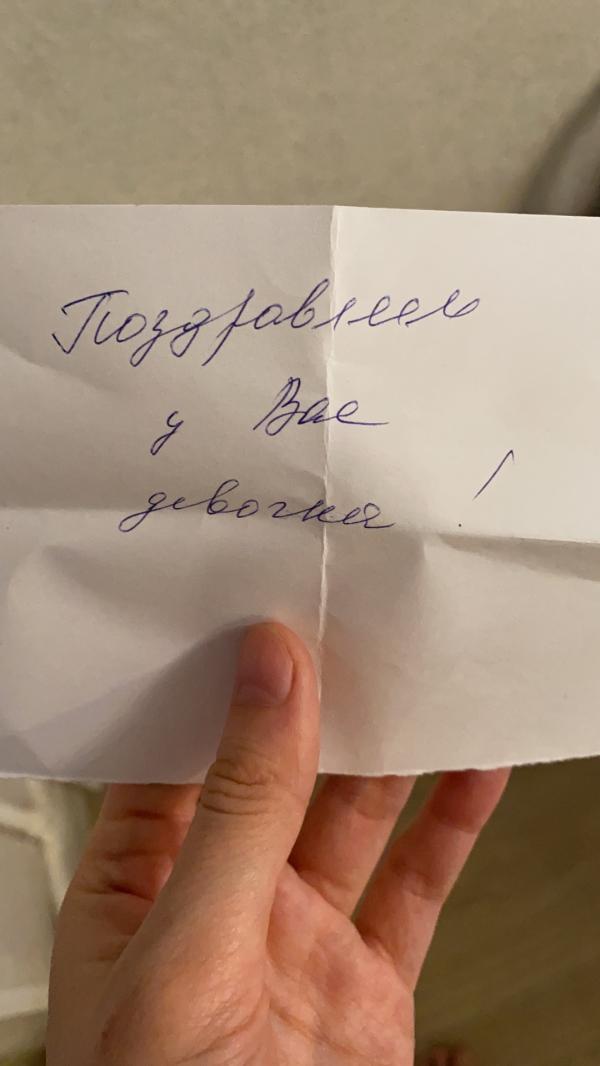 Поздравляем
у Вас
девочка !